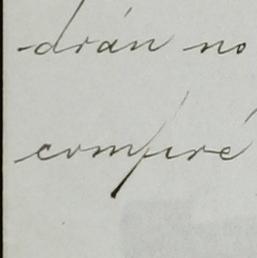 drán no
compré